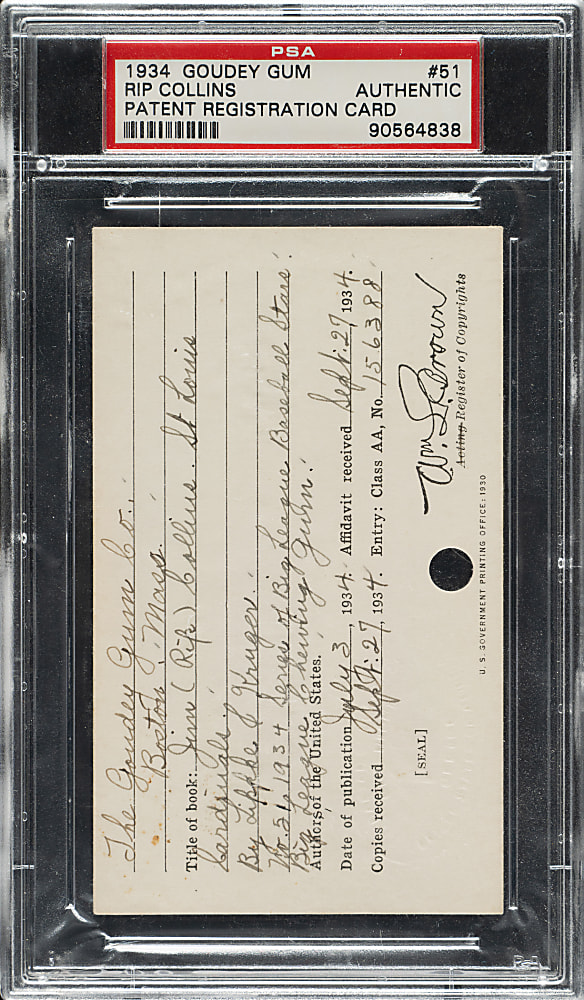 PSA
1934 GOUDEY GUM #51
RIP COLLINS AUTHENTIC
PATENT REGISTRATION CARD
90564838
The Goudey Gum Co.,
Boston, Mass.
Title of book: Jim (Rip) Collins. St. Louis
Cardinals.
By Lipple & Kruger.
No. 51, 1934 Series of Big League Baseball Stars.
Big League Chewing Gum.
Authors of the United States.
Date of publication July 3, 1934. Affidavit received Sept. 27, 1934.
Copies received Sept. 27, 1934. Entry: Class AA, No. 156388
Wm. L. Brown
Acting Register of Copyrights
[SEAL]
U. S. GOVERNMENT PRINTING OFFICE: 1930